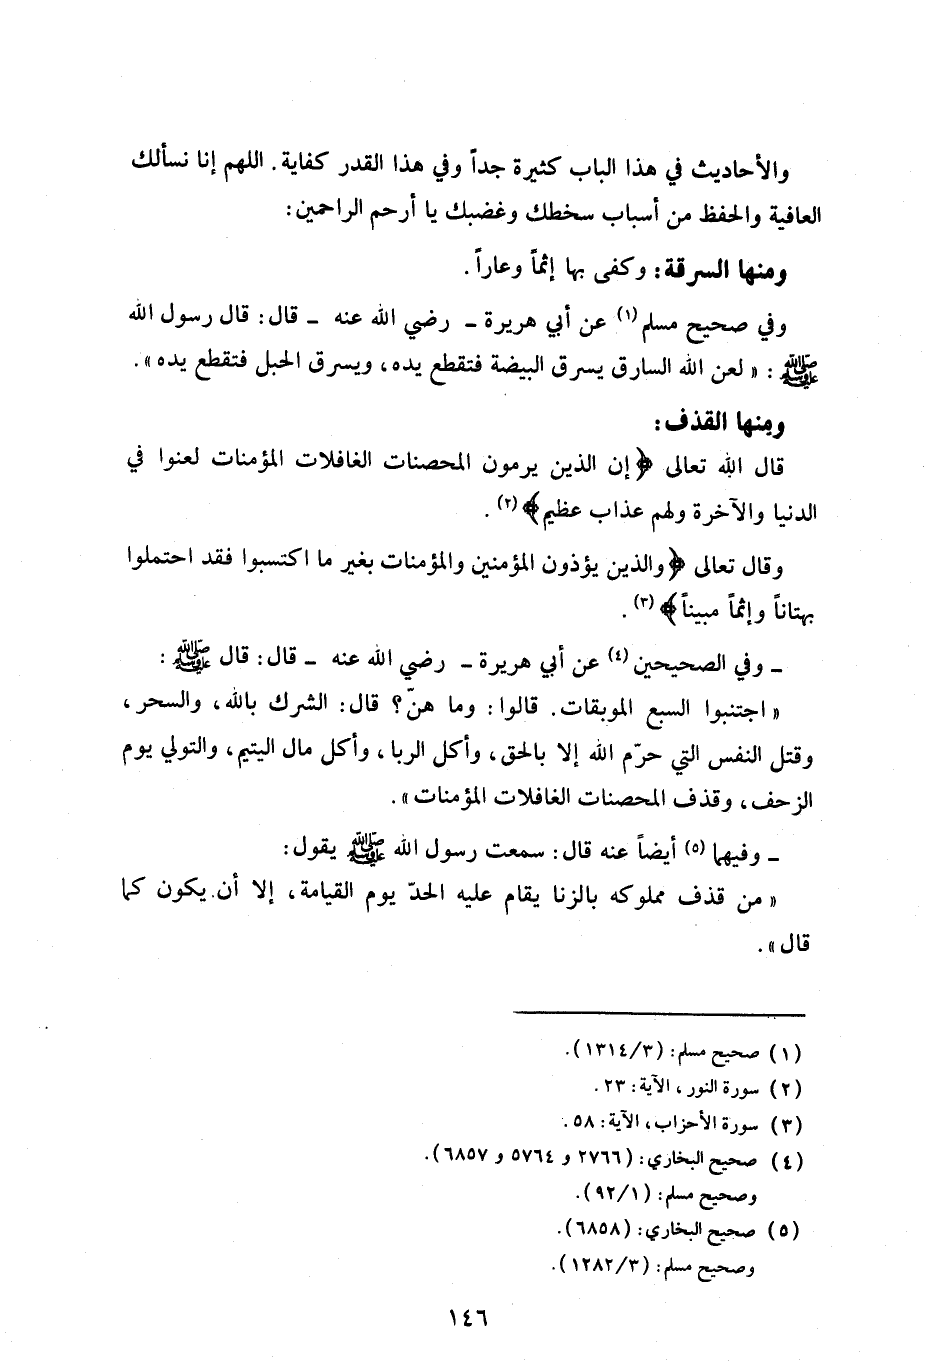 والأحاديث في هذا الباب كثيرة جداً وفي هذا القدر كفاية. اللهم إنا نسألك
العافية والحفظ من أسباب سخطك وغضبك يا أرحم الراحمين:
ومنها السرقة: وكفى بها إثماً وعاراً.
وفي صحيح مسلم(١) عن أبي هريرة - رضي الله عنه - قال: قال رسول الله
ﷺ: «لعن الله السارق يسرق البيضة فتقطع يده، ويسرق الحبل فتقطع يده».
ومنها القذف:
قال الله تعالى ﴿إن الذين يرمون المحصنات الغافلات المؤمنات لعنوا في
الدنيا والآخرة ولهم عذاب عظيم﴾(٢).
وقال تعالى ﴿والذين يؤذون المؤمنين والمؤمنات بغير ما اكتسبوا فقد احتملوا
بهتاناً وإثماً مبيناً﴾(٣).
- وفي الصحيحين(٤) عن أبي هريرة - رضي الله عنه - قال: قال ﷺ:
«اجتنبوا السبع الموبقات. قالوا: وما هنّ؟ قال: الشرك بالله، والسحر،
وقتل النفس التي حرّم الله إلا بالحق، وأكل الربا، وأكل مال اليتيم، والتولي يوم
الزحف، وقذف المحصنات الغافلات المؤمنات».
- وفيهما(٥) أيضاً عنه قال: سمعت رسول الله ﷺ يقول:
«من قذف مملوكه بالزنا يقام عليه الحدّ يوم القيامة، إلا أن يكون كما
قال».
(١) صحيح مسلم: (١٣١٤/٣).
(٢) سورة النور، الآية: ٢٣.
(٣) سورة الأحزاب، الآية: ٥٨.
(٤) صحيح البخاري: (٢٧٦٦ و ٥٧٦٤ و ٦٨٥٧).
وصحيح مسلم: (٩٢/١).
(٥) صحيح البخاري: (٦٨٥٨).
وصحيح مسلم: (١٢٨٢/٣).
١٤٦